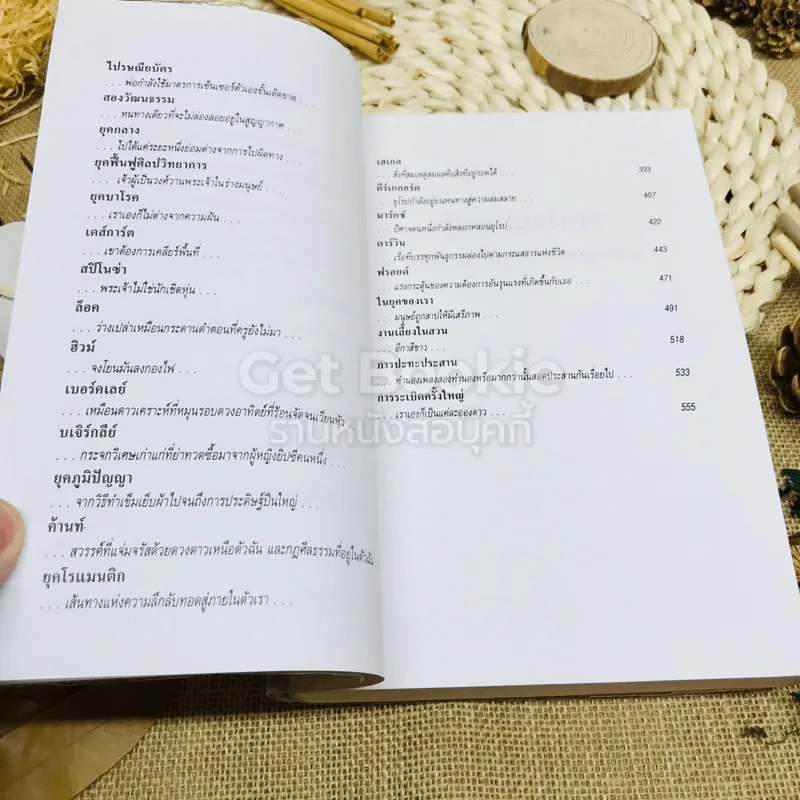 ไปรษณียบัตร
... พ่อกำลังใช้มาตรการเซ็นเซอร์ตัวเองขั้นเด็ดขาด ...
สองวัฒนธรรม
... หนทางเดียวที่จะไม่ล่องลอยอยู่ในสูญญากาศ ...
ยุคกลาง
... ไปได้แค่ระยะหนึ่งย่อมต่างจากการไปผิดทาง ...
ยุคฟื้นฟูศิลปวิทยาการ
... เจ้าผู้เป็นวงศ์วานพระเจ้าในร่างมนุษย์ ...
ยุคบาโรค
... เราเองก็ไม่ต่างจากความฝัน ...
เดส์การ์ต
... เขาต้องการเคลียร์พื้นที่ ...
สปิโนซ่า
... พระเจ้าไม่ใช่นักเชิดหุ่น ...
ล็อค
... ว่างเปล่าเหมือนกระดานดำตอนที่ครูยังไม่มา ...
ฮิวม์
... จงโยนมันลงกองไฟ ...
เบอร์คเลย์
... เหมือนดาวเคราะห์ที่หมุนรอบดวงอาทิตย์ที่ร้อนจัดจนเวียนหัว ...
บเจิร์กลีย์
... กระจกวิเศษเก่าแก่ที่ย่าทวดซื้อมาจากผู้หญิงยิปซีคนหนึ่ง ...
ยุคภูมิปัญญา
... จากวิธีทำเข็มเย็บผ้าไปจนถึงการประดิษฐ์ปืนใหญ่ ...
ค้านท์
... สวรรค์ที่แจ่มจรัสด้วยดวงดาวเหนือตัวฉัน และกฎศีลธรรมที่อยู่ในตัวฉัน
ยุคโรแมนติก
... เส้นทางแห่งความลึกลับทอดสู่ภายในตัวเรา ...
เฮเกล 393
... สิ่งที่สมเหตุสมผลคือสิ่งที่อยู่รอดได้ ...
คีร์เกกอร์ด 407
... ยุโรปกำลังอยู่บนหนทางสู่ความล่มสลาย ...
มาร์กซ์ 422
... ปีศาจตนหนึ่งกำลังหลอกหลอนยุโรป ...
ดาร์วิน 443
... เรือที่บรรทุกพันธุกรรมล่องไปตามกระแสธารแห่งชีวิต ...
ฟรอยด์ 471
... แรงกระตุ้นของความต้องการอันรุนแรงที่เกิดขึ้นกับเธอ ...
ในยุคของเรา 491
... มนุษย์ถูกสาปให้มีเสรีภาพ ...
งานเลี้ยงในสวน 518
... อีกาสีขาว ...
การปะทะประสาน 533
... ทำนองเพลงสองทำนองหรือมากกว่านั้นสอดประสานกันเรื่อยไป ...
การระเบิดครั้งใหญ่ 555
... เราเองก็เป็นแค่ละอองดาว ...
Get Bookie
ร้านหนังสือบุคกี้